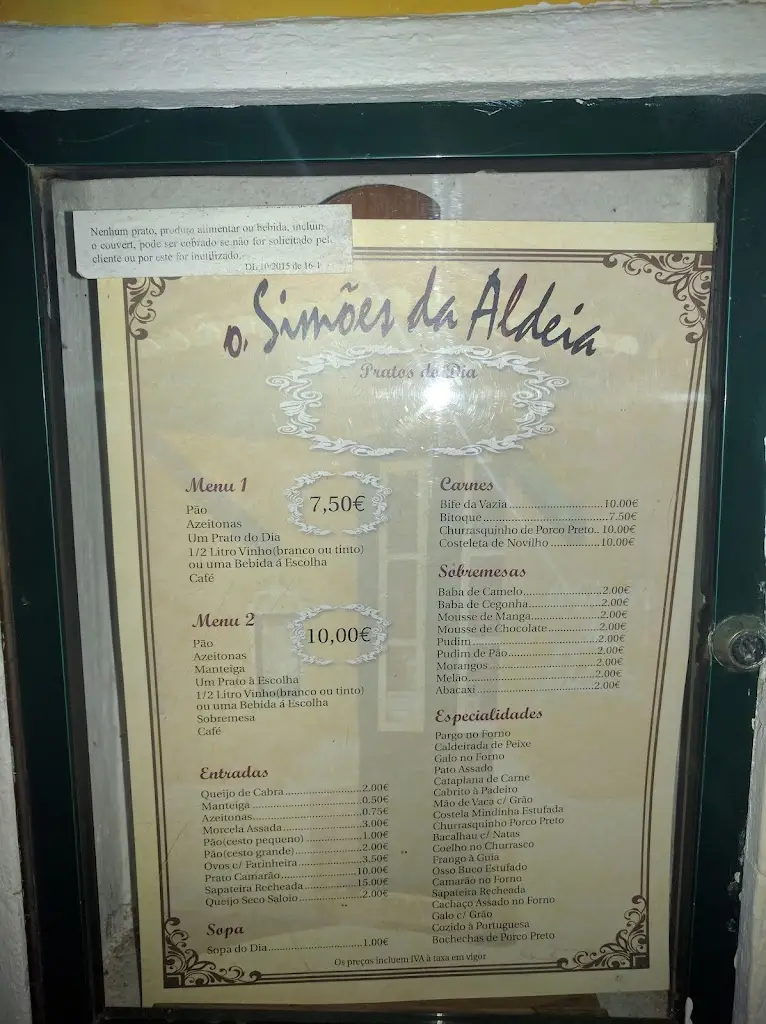 Nenhum prato, produto alimentar ou bebida, incluin
o couvert, pode ser cobrado se não for solicitado pel
cliente ou por este for inutilizado.
DL 10/2015 de 16-1
o. Simões da Aldeia
Pratos do Dia
Menu 1
7,50€
Pão
Azeitonas
Um Prato do Dia
1/2 Litro Vinho(branco ou tinto)
ou uma Bebida á Escolha
Café
Menu 2
10,00€
Pão
Azeitonas
Manteiga
Um Prato à Escolha
1/2 Litro Vinho(branco ou tinto)
ou uma Bebida á Escolha
Sobremesa
Café
Entradas
Queijo de Cabra.....................2.00€
Manteiga..............................0.50€
Azeitonas..............................0.75€
Morcela Assada.....................3.00€
Pão(cesto pequeno)...............1.00€
Pão(cesto grande)..................2.00€
Ovos c/ Farinheira.................3.50€
Prato Camarão.....................10.00€
Sapateira Recheada..............15.00€
Queijo Seco Saloio.................2.00€
Sopa
Sopa do Dia...........................1.00€
Carnes
Bife da Vazia..........................10.00€
Bitoque..................................7.50€
Churrasquinho de Porco Preto..10.00€
Costeleta de Novilho..............10.00€
Sobremesas
Baba de Camelo.....................2.00€
Baba de Cegonha...................2.00€
Mousse de Manga..................2.00€
Mousse de Chocolate.............2.00€
Pudim...................................2.00€
Pudim de Pão........................2.00€
Morangos..............................2.00€
Melão....................................2.00€
Abacaxi.................................2.00€
Especialidades
Pargo no Forno
Caldeirada de Peixe
Galo no Forno
Pato Assado
Cataplana de Carne
Cabrito à Padeiro
Mão de Vaca c/ Grão
Costela Mindinha Estufada
Churrasquinho Porco Preto
Bacalhau c/ Natas
Coelho no Churrasco
Frango à Guia
Osso Buco Estufado
Camarão no Forno
Sapateira Recheada
Cachaço Assado no Forno
Galo c/ Grão
Cozido à Portuguesa
Bochechas de Porco Preto
Os preços incluem IVA à taxa em vigor